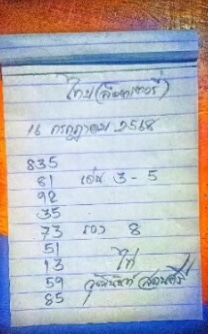 ไทย (
16 กรกฎาคม 2568
835
81 เด่น 3 - 5
92
35
73 รอง 8
51
13 ให้
59
85